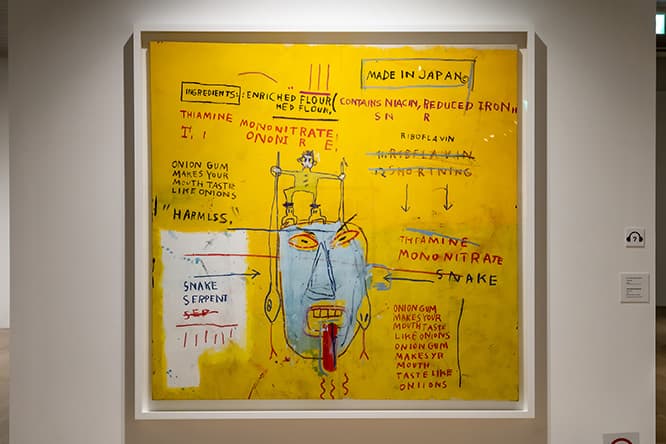 MADE IN JAPAN©
INGREDIENTS: : ENRICHED "FLOUR (CONTAINS NIACIN, REDUCED IRON,,
MED FLOUR, SN R
THIAMINE MONONITRATE!
T, I ONONI R E,
RIBOFLAVIN
11. RIBOFLAVIN
12. SHORTNING
ONION GUM
MAKES YOUR
MOUTH TASTE
LIKE ONIONS
"HARMLESS."
THIAMINE
MONONITRATE
SNAKE
SNAKE
SERPENT
SER
ONION GUM
MAKES YOUR
MOUTH TASTE
LIKE ONIONS
ONION GUM
MAKES YR
MOUTH
TASTE LIKE
ONIIONS